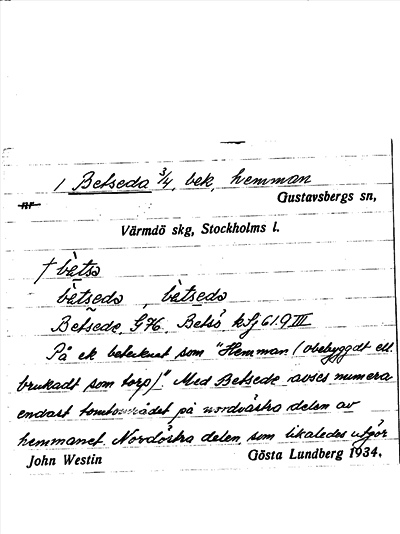 1 Betseda 3/4, bek, hemman
nr
Gustavsbergs sn,
Värmdö skg, Stockholms l.
† bètsa
bètseda, bètseda
Betsede, GK. Betsö kSj 61.9 III
På ek betecknat som "Hemman (obebyggdt ell.
brukadt som torp)." Med Betsede avses numera
endast tomtområdet på nordvästra delen av
hemmanet. Nordöstra delen, som likaledes utgör
John Westin
Gösta Lundberg 1934.